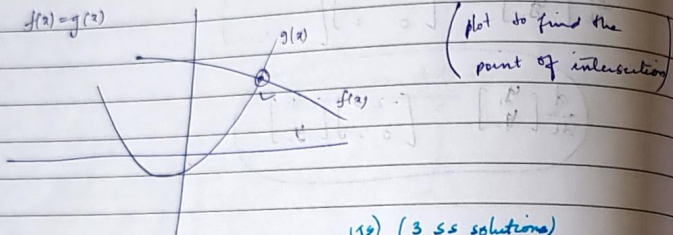 f(x) = g(x)
g(x)
(plot to find the
point of intersection)
f(x)
(3 ss solutions)